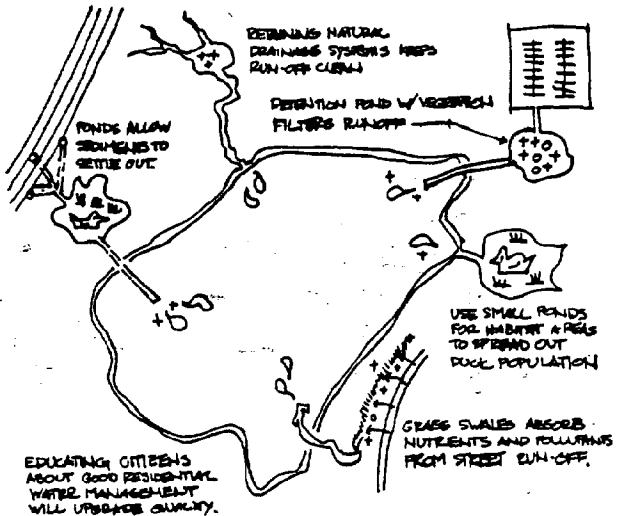 RETAINING NATURAL
DRAINAGE SYSTEMS KEEPS
RUN-OFF CLEAN
DETENTION POND W/ VEGETATION
FILTERS RUNOFF
PONDS ALLOW
SEDIMENTS TO
SETTLE OUT.
USE SMALL PONDS
FOR HABITAT AREAS
TO SPREAD OUT
DUCK POPULATION
GRASS SWALES ABSORB
NUTRIENTS AND POLLUTANTS
FROM STREET RUN-OFF.
EDUCATING CITIZENS
ABOUT GOOD RESIDENTIAL
WATER MANAGEMENT
WILL UPGRADE QUALITY.